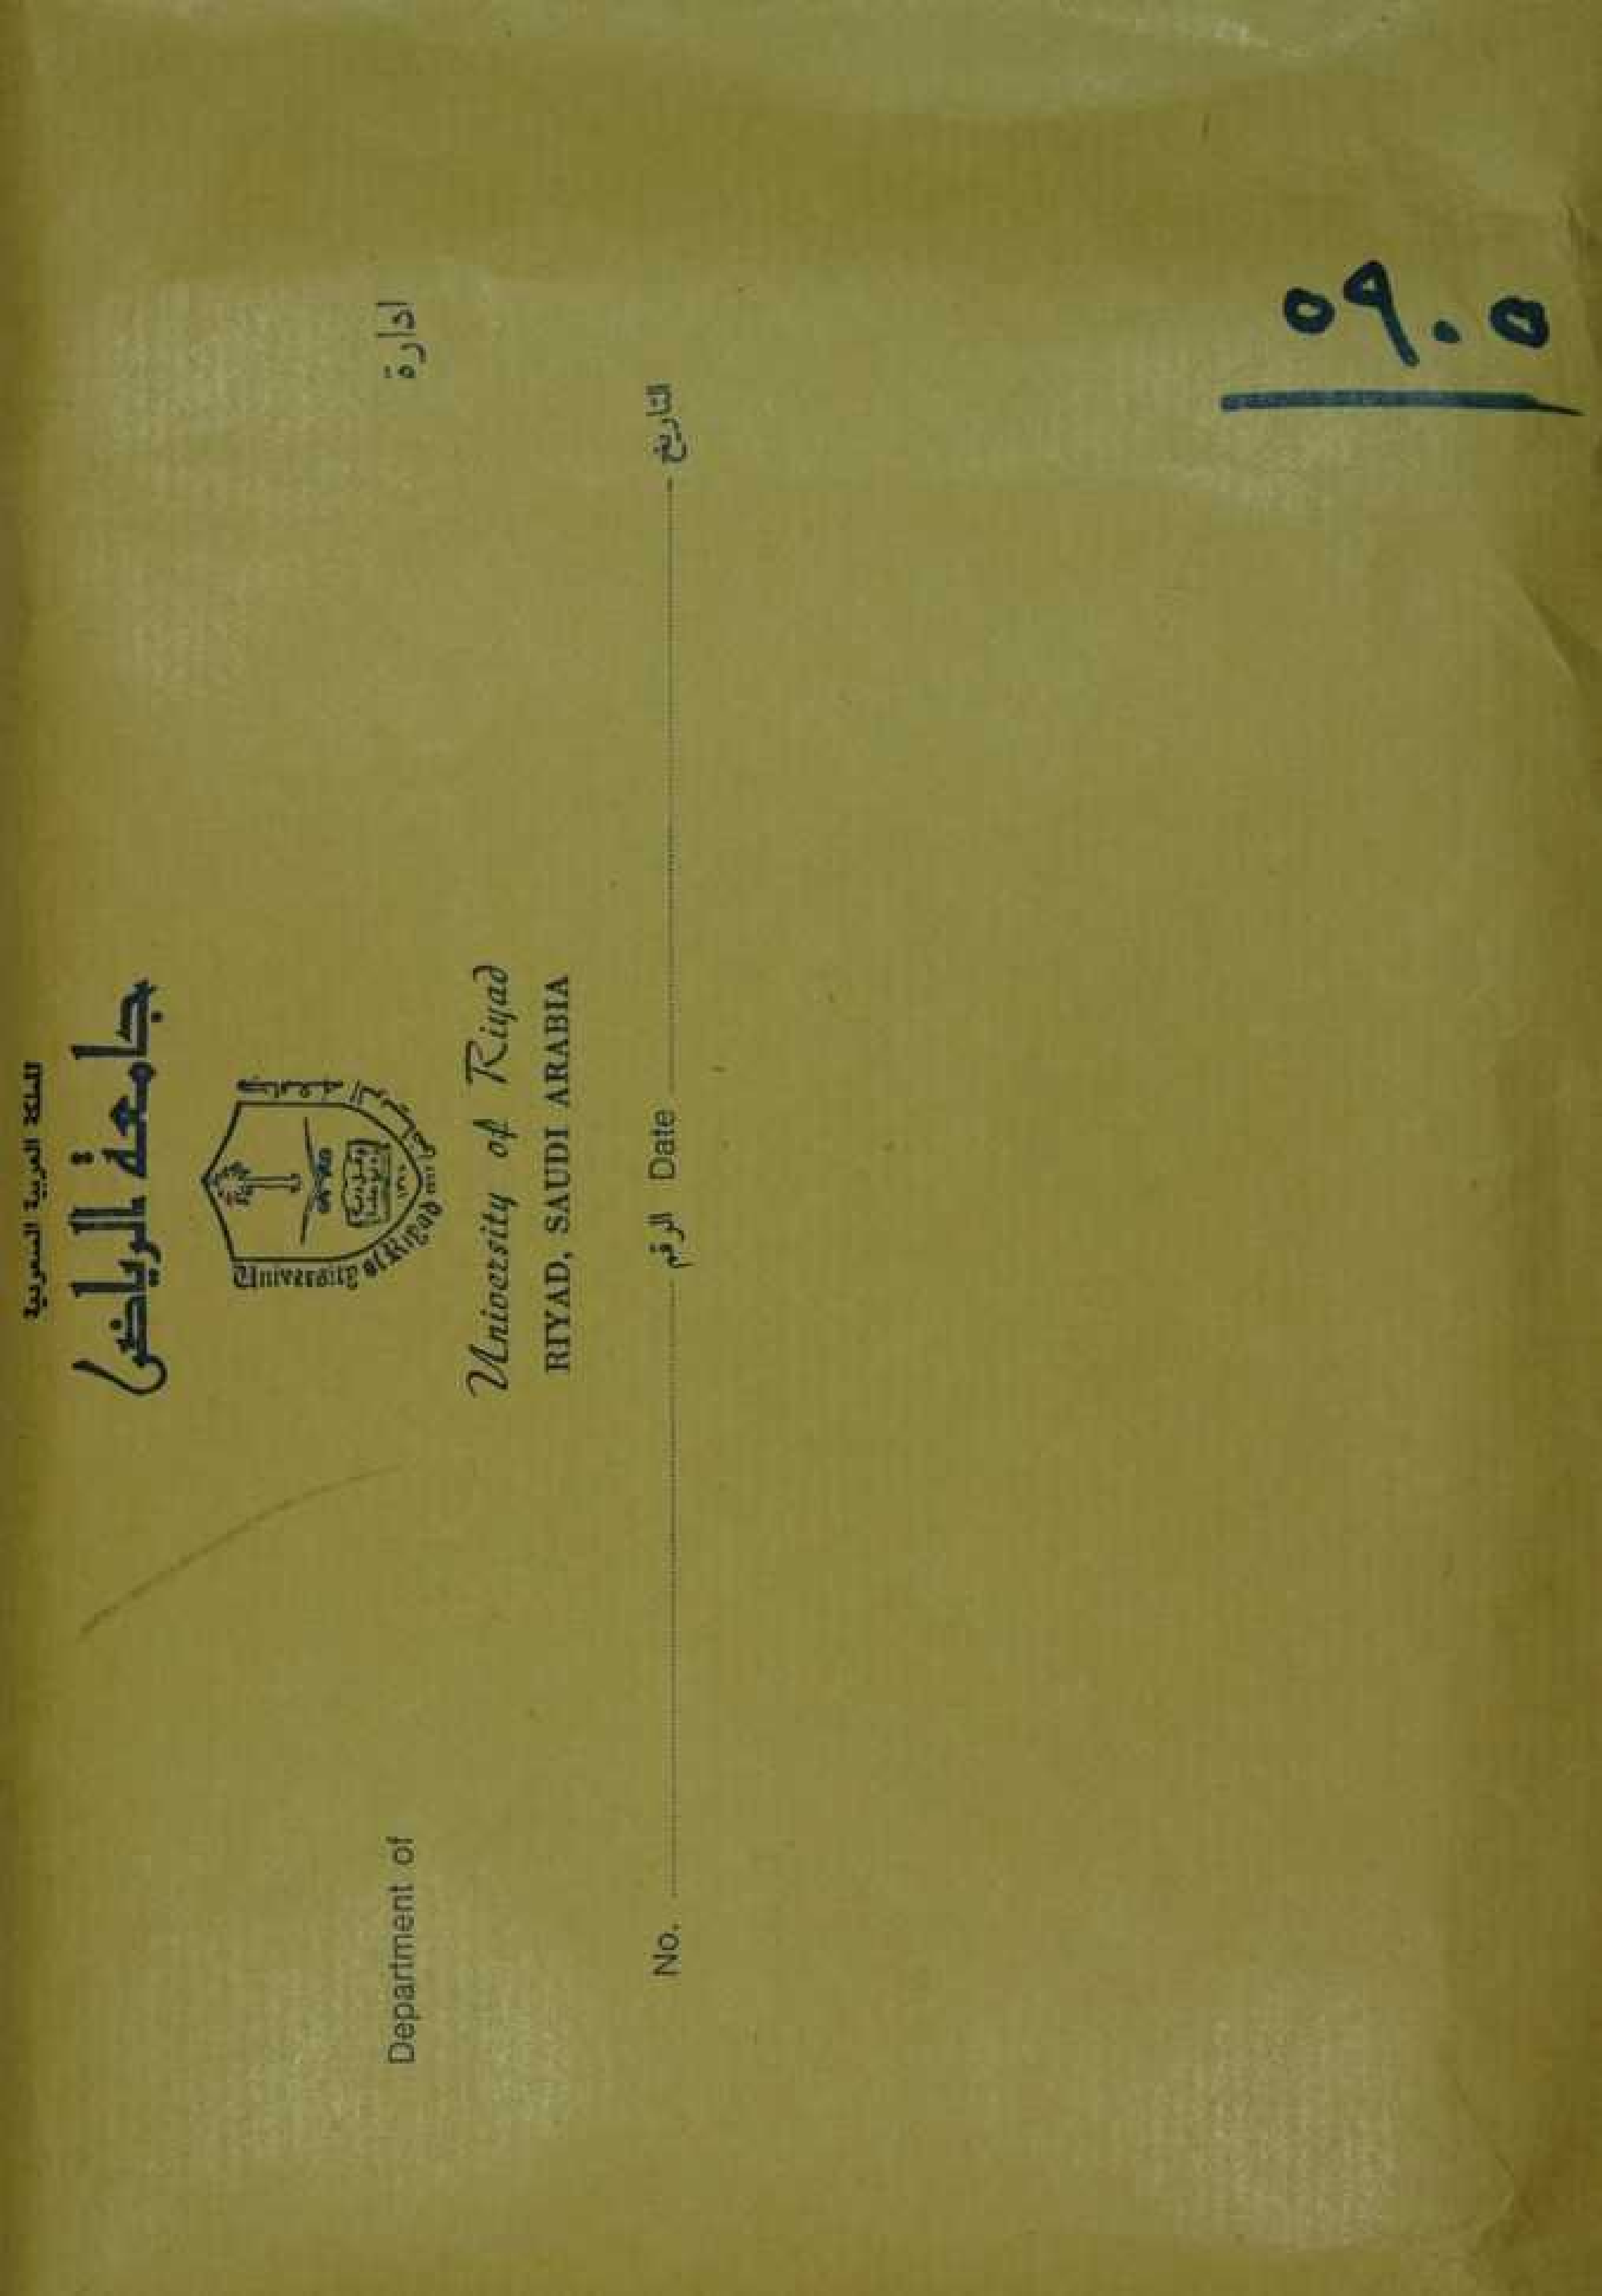 المملكة العربية السعودية
جامعة الرياض
University of Riyad
جامعة الرياض
Department of
ادارة
University of Riyad
RIYAD, SAUDI ARABIA
No. الرقم Date التاريخ
٥٩٠٥